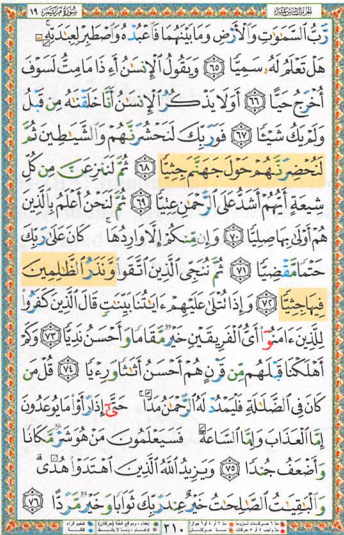 سورة مريم ١٩
رَّبُّ السَّمَٰوَٰتِ وَالْأَرْضِ وَمَا بَيْنَهُمَا فَاعْبُدْهُ وَاصْطَبِرْ لِعِبَٰدَتِهِۦ ۚ
هَلْ تَعْلَمُ لَهُۥ سَمِيًّا ٦٥ وَيَقُولُ الْإِنسَٰنُ أَءِذَا مَا مِتُّ لَسَوْفَ
أُخْرَجُ حَيًّا ٦٦ أَوَلَا يَذْكُرُ الْإِنسَٰنُ أَنَّا خَلَقْنَٰهُ مِن قَبْلُ
وَلَمْ يَكُ شَيْـًٔا ٦٧ فَوَرَبِّكَ لَنَحْشُرَنَّهُمْ وَالشَّيَٰطِينَ ثُمَّ
لَنُحْضِرَنَّهُمْ حَوْلَ جَهَنَّمَ جِثِيًّا ٦٨ ثُمَّ لَنَنزِعَنَّ مِن كُلِّ
شِيعَةٍ أَيُّهُمْ أَشَدُّ عَلَى الرَّحْمَٰنِ عِتِيًّا ٦٩ ثُمَّ لَنَحْنُ أَعْلَمُ بِالَّذِينَ
هُمْ أَوْلَىٰ بِهَا صِلِيًّا ٧٠ وَإِن مِّنكُمْ إِلَّا وَارِدُهَا ۚ كَانَ عَلَىٰ رَبِّكَ
حَتْمًا مَّقْضِيًّا ٧١ ثُمَّ نُنَجِّي الَّذِينَ اتَّقَوا وَّنَذَرُ الظَّٰلِمِينَ
فِيهَا جِثِيًّا ٧٢ وَإِذَا تُتْلَىٰ عَلَيْهِمْ ءَايَٰتُنَا بَيِّنَٰتٍ قَالَ الَّذِينَ كَفَرُوا
لِلَّذِينَ ءَامَنُوٓا أَيُّ الْفَرِيقَيْنِ خَيْرٌ مَّقَامًا وَأَحْسَنُ نَدِيًّا ٧٣ وَكَمْ
أَهْلَكْنَا قَبْلَهُم مِّن قَرْنٍ هُمْ أَحْسَنُ أَثَٰثًا وَرِءْيًا ٧٤ قُلْ مَن
كَانَ فِي الضَّلَٰلَةِ فَلْيَمْدُدْ لَهُ الرَّحْمَٰنُ مَدًّا ۚ حَتَّىٰٓ إِذَا رَأَوْا مَا يُوعَدُونَ
إِمَّا الْعَذَابَ وَإِمَّا السَّاعَةَ فَسَيَعْلَمُونَ مَنْ هُوَ شَرٌّ مَّكَانًا
وَأَضْعَفُ جُندًا ٧٥ وَيَزِيدُ اللَّهُ الَّذِينَ اهْتَدَوْا هُدًى ۗ
وَالْبَٰقِيَٰتُ الصَّٰلِحَٰتُ خَيْرٌ عِندَ رَبِّكَ ثَوَابًا وَخَيْرٌ مَّرَدًّا ٧٦
٣١٠